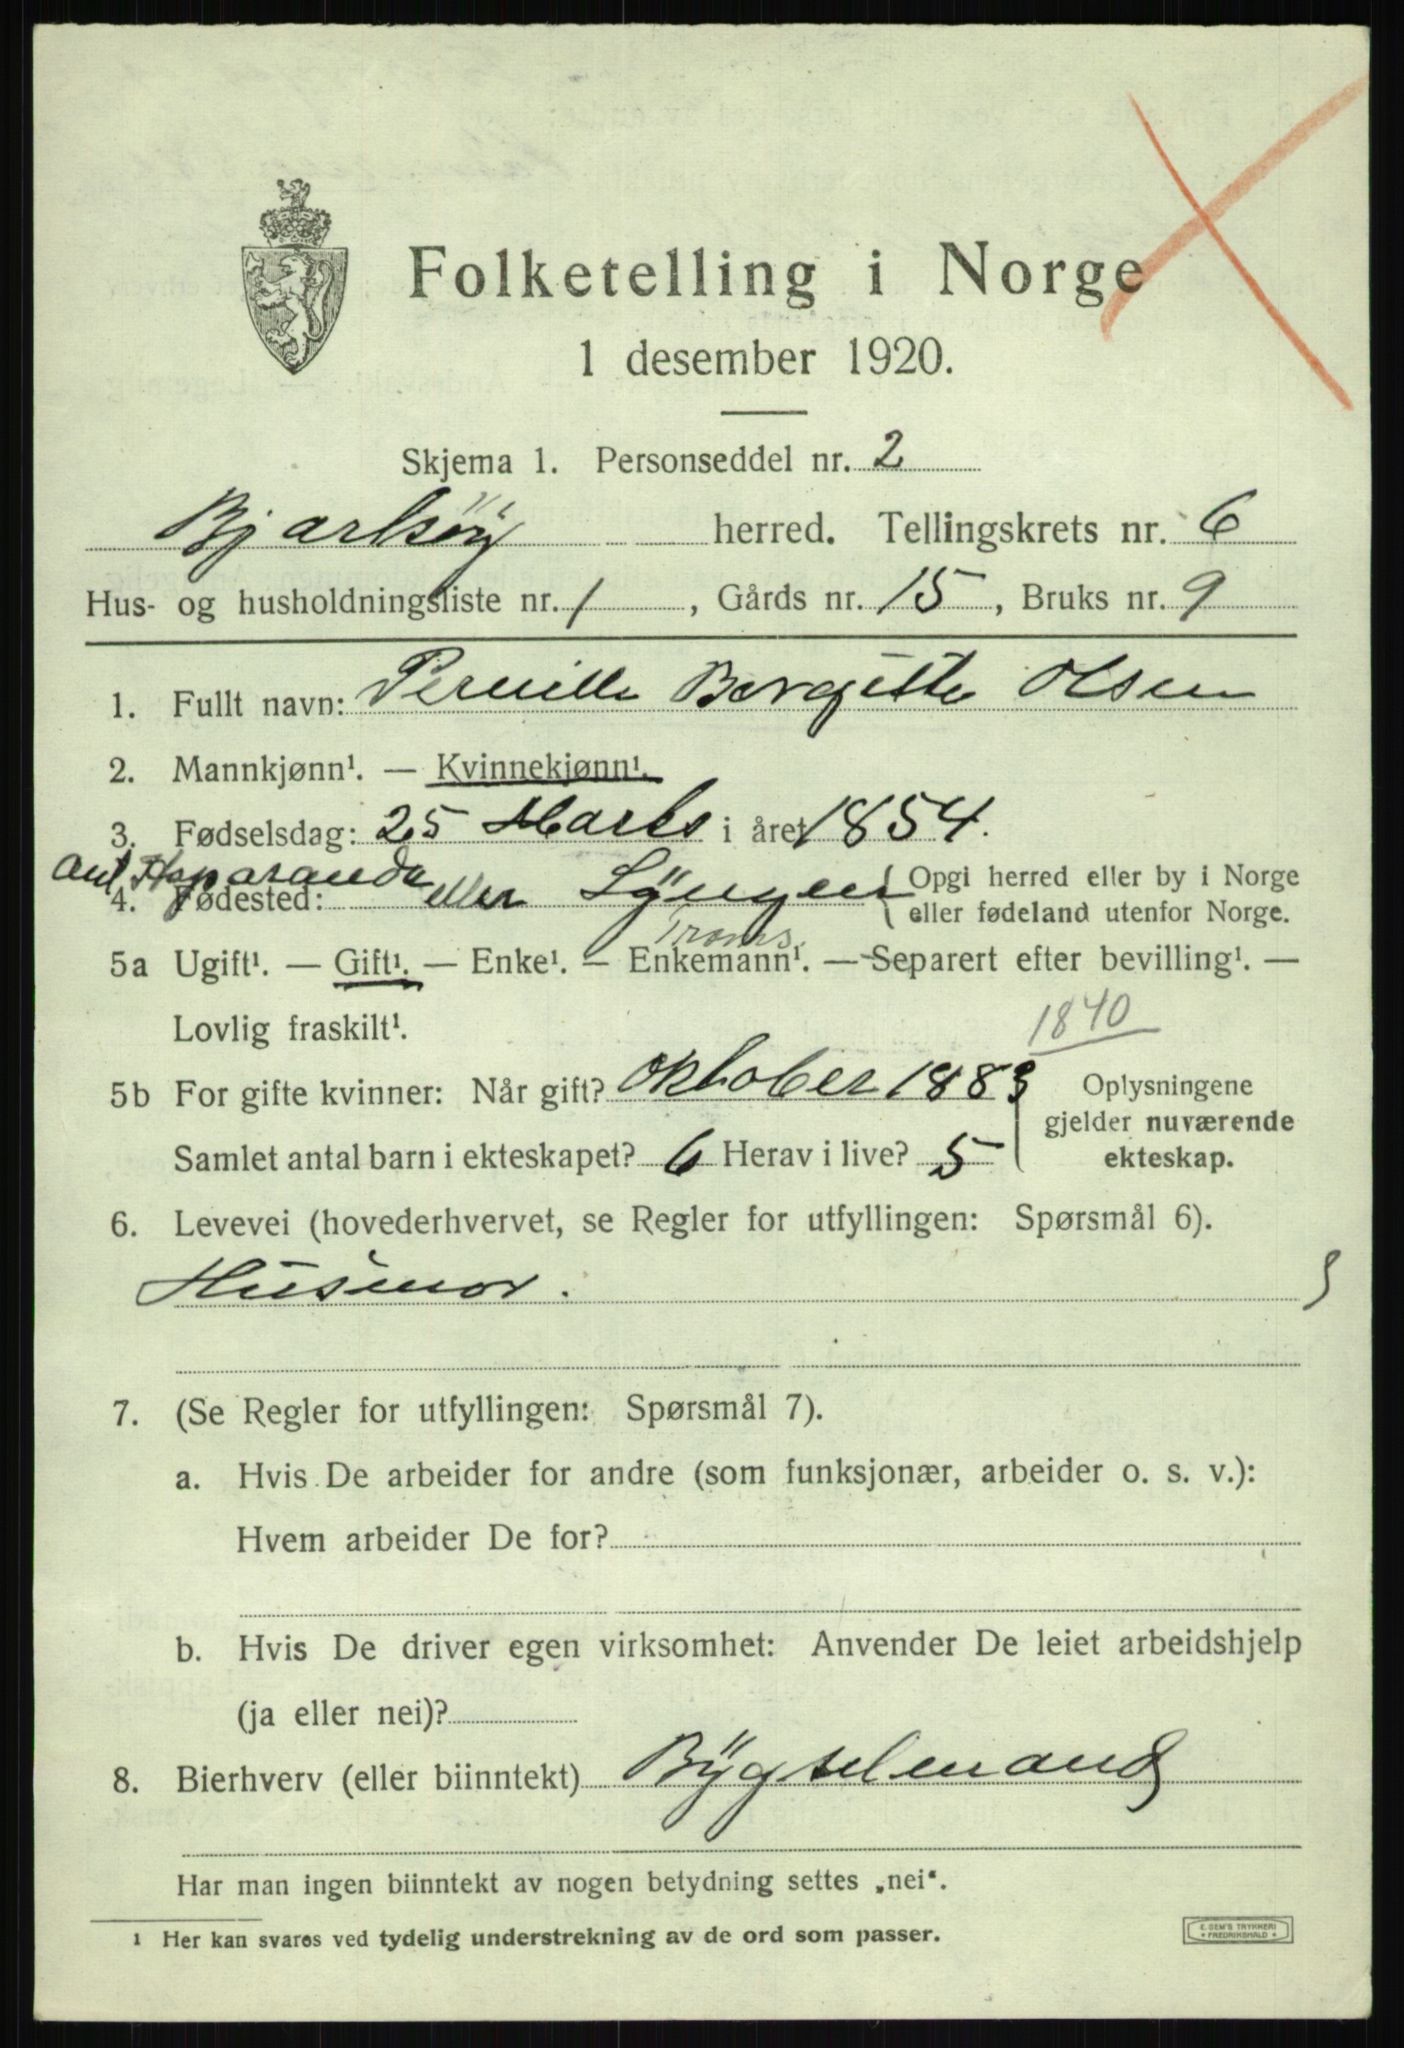 Folketelling i Norge
1 desember 1920.
Skjema 1. Personseddel nr. 2
Bjarkøÿ herred. Tellingskrets nr. 6
Hus- og husholdningsliste nr. 1, Gårds nr. 15, Bruks nr. 9
1. Fullt navn: Pernille Bergitte Olsen
2. Mannkjønn¹. — Kvinnekjønn¹.
3. Fødselsdag: 25 Marts i året 1854.
Haparanda
4. Fødested: eller Lÿngen
Opgi herred eller by i Norge
eller fødeland utenfor Norge.
Troms.
5a Ugift¹. — Gift¹. — Enke¹. — Enkemann¹. — Separert efter bevilling¹. —
Lovlig fraskilt¹.
1840
5b For gifte kvinner: Når gift? Oktober 1883
Oplysningene
gjelder nuværende
ekteskap.
Samlet antal barn i ekteskapet? 6 Herav i live? 5
6. Levevei (hovederhvervet, se Regler for utfyllingen: Spørsmål 6).
Husmor.
7. (Se Regler for utfyllingen: Spørsmål 7).
a. Hvis De arbeider for andre (som funksjonær, arbeider o. s. v.):
Hvem arbeider De for?
b. Hvis De driver egen virksomhet: Anvender De leiet arbeidshjelp
(ja eller nei)?
8. Bierhverv (eller biinntekt) Bÿgselmand
Har man ingen biinntekt av nogen betydning settes „nei“.
1 Her kan svares ved tydelig understrekning av de ord som passer.
E. SEM'S TRYKKERI
FREDRIKSHALD